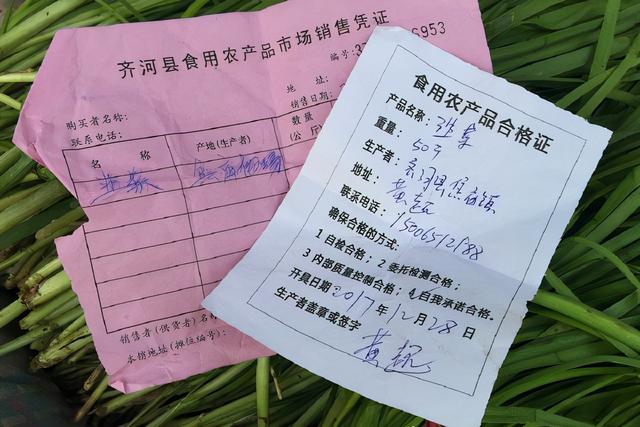 齐河县食用农产品市场销售凭证
编号:
6953
购买者名称:
地 址:
联系电话:
销售日期:
名 称
产地(生产者)
数量
(公斤
韭菜
销售者(供货者)名称
本销地址(摊位编号):
食用农产品合格证
产品名称: 韭菜
重量: 50斤
生产者:
地址:
黄超
联系电话:
确保合格的方式:
1 自检合格; 2 委托检测合格;
3 内部质量控制合格; 4 自我承诺合格。
开具日期 2017年12月28日
生产者盖章或签字
黄超